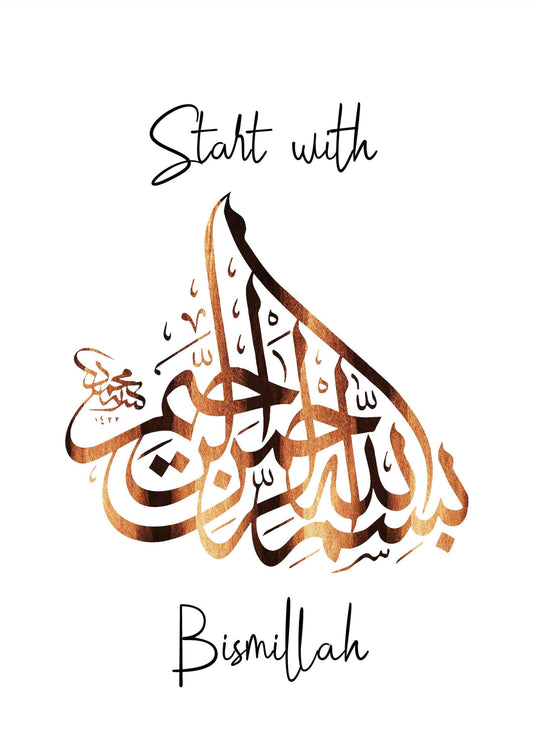 Start with
بسم الله الرحمن الرحيم
١٤٢٢
Bismillah